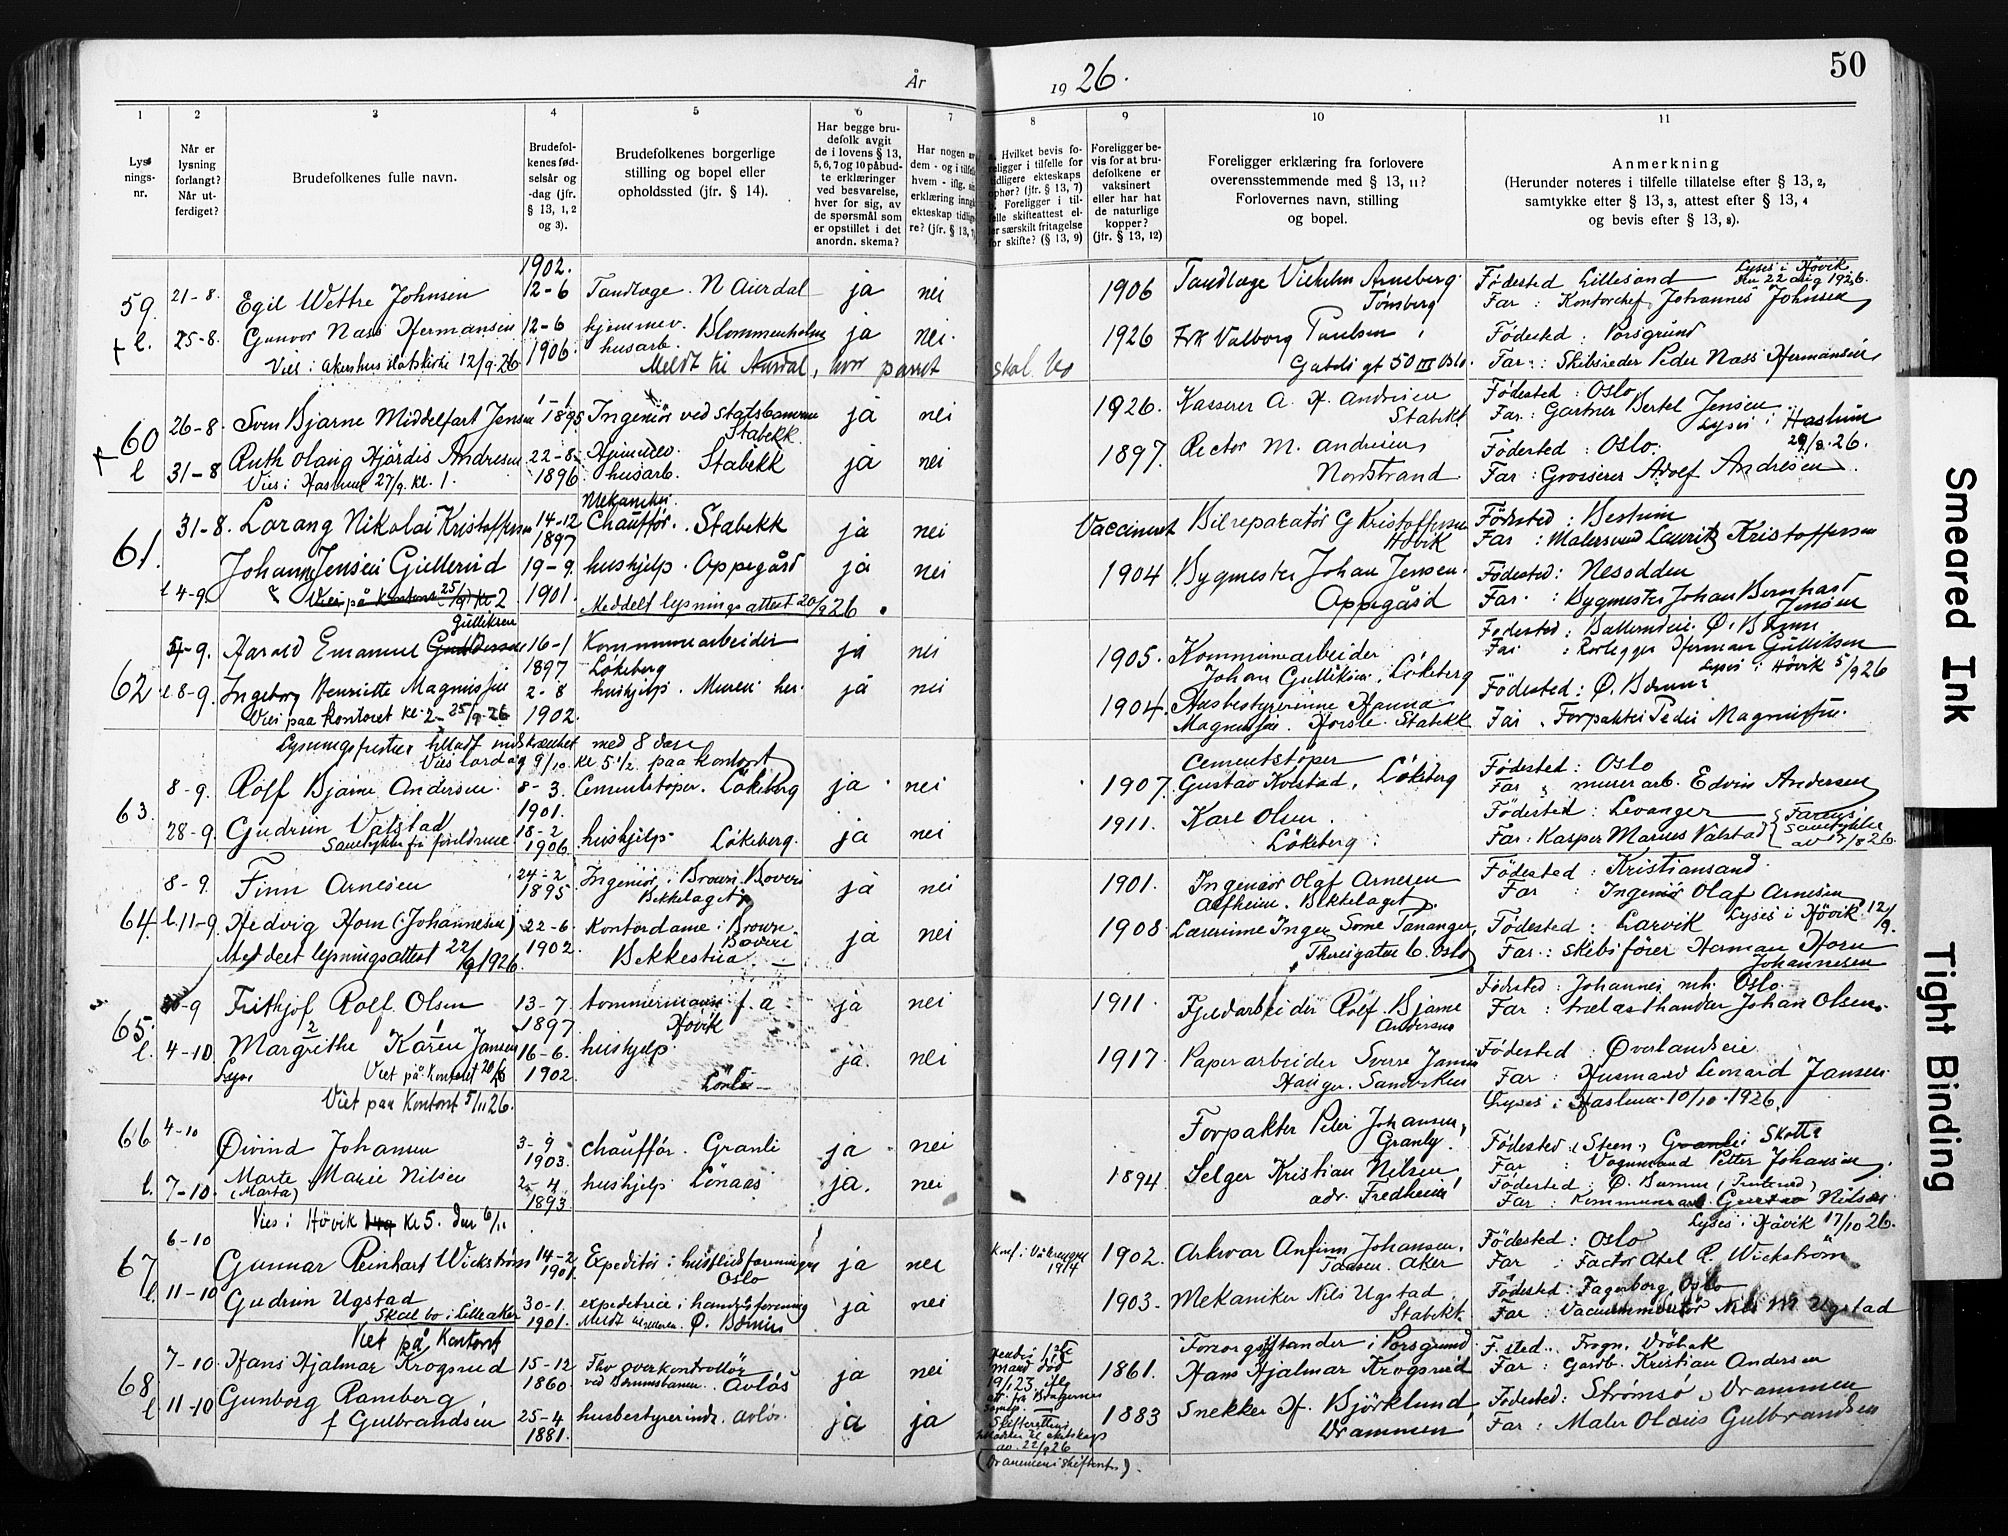 50
År
19 26.
1
2
3
4
5
6
7
8
9
10
11
Lysnings-
nr.
Når er
lysning
forlangt?
Når ut-
ferdiget?
Brudefolkenes fulle navn.
Brudefol-
kenes fød-
selsår og
-dag (jfr.
§ 13, 1, 2
og 3).
Brudefolkenes borgerlige
stilling og bopel eller
opholdssted (jfr. § 14).
Har begge bru-
defolk avgit
de i lovens § 13,
5, 6, 7 og 10 påbud-
te erklæringer
ved besvarelse,
hver for sig, av
de spørsmål som
er opstillet i det
anordn. skema?
Har nogen
dem - og i
hvem - iflg.
erklæring
ekteskap
re? (jfr. § 13,
Hvilket bevis fo-
religger i tilfelle for
tidligere ekteskaps
ophør? (jfr. § 13, 7)
b. Foreligger i til-
felle skifteattest el-
er særskilt fritagelse
for skifte? (§ 13, 9)
Foreligger be-
vis for at bru-
defolkene er
vaksinert
eller har hat
de naturlige
kopper?
(jfr. § 13, 12)
Foreligger erklæring fra forlovere
overensstemmende med § 13, 11?
Forlovernes navn, stilling
og bopel.
Anmerkning
(Herunder noteres i tilfelle tillatelse efter § 13, 2,
samtykke efter § 13, 3, attest efter § 13, 4
og bevis efter § 13, 8).
59. 21-8. Egil Wettre Johnsen 1902. 12-6 Tandlæge ja nei 1906 Tandlæge Vilhelm Arneberg Tønsberg Fødested Lillesand Lyses i Høvik 22 aug 1926.
Far: Kontorchef Johannes Johnsen
l. 25-8. Gunvor Næss Hermansen 12-6 1906. hjemmev. husarb. Blommenholm ja nei. 1926 Frk Valborg Paulsen Fødested: Porsgrund
Vies i Akershus slotskirke 12/9-26 Meldt til Aurdal, hvor parret skal bo gt 50 III Oslo. Far: Skibsreder Peder Næss Hermansen
60 26-8. Sven Bjarne Middelfart Jensen 1895 Ingeniør ved statsbanerne Stabekk ja nei 1926. Kasserer A. H. Andresen Stabekk Fødested: Oslo
Far: Gartner Bertel Jensen Lyses i Haslum 29/8.26.
l 31-8 Ruth Olaug Hjördis Andresen 22-8 1896. Hjemmev. husarb. Stabekk ja nei 1897. Rector M. Andresen Nordstrand Fødested: Oslo.
Vies i Haslum 27/9. kl. 1. Far: Grosserer Adolf Andresen.
61. 31-8. Lorang Nikolai Kristoffersen 14-12 1897 Mekaniker Chauffør. Stabekk ja nei Vaccineret Bilreparatør G Kristoffersen Høvik Fødested: Bestum
Far: Malersvend Lauritz Kristoffersen
l 4-9. Johanne Jensen Gillerud 19-9. 1901. hushjelp. Oppegård ja nei 1904 Bygmester Johan Jensen. Oppegård Fødested: Nesodden
Vies på Kontoret 25/9 kl 2 Meddelt lysningsattest 20/9 26. Far: Bygmester Johan Bernhard Jensen
62 Harald Emanuel Gulliksen 16-1 1897 Kommunearbeider Løkeberg ja nei 1905. Kommunearbeider Johan Gulliksen, Løkeberg Fødested: Ø. Bærum
Far: Rørlegger Herman Gulliksen Lyses i Høvik 5/9 26
l. 8-9. Ingeborg Henriette Magnussen 2-8 1902. hushjelp. ja nei 1904. Husbestyrerinne Hanna Magnussen. Stabekk Fødested: Ø. Bærum
Vies paa kontoret kl. 2 25/9.26 Far. Forpakter Peder Magnussen.
Lysningsfristen tilladt indskrænket med 8 dage
Vies lørdag 9/10 kl 5 1/2 paa kontoret
63. 8-9. Rolf Bjarne Andersen. 8-3. 1901. Cementstøper. Løkeberg ja nei 1907. Cementstøper Gustav Kolstad. Løkeberg Fødested: Oslo
Far, murerarb. Edvin Andersen
28-9. Gudrun Valstad 18-2 1906. hushjelp Løkeberg. ja 1911. Karl Olsen. Løkeberg. Fødested: Levanger
Samtykke fra foreldrene. Far: Kasper Marius Valstad Farens samtykke av 7/8 26.
64. 8-9. Finn Arnesen 24-2 1895 Ingeniør i Brown Boveri Bekkelaget ja nei 1901. Ingeniør Olaf Arnesen Alfheim. Bekkelaget. Fødested: Kristiansand.
Far: Ingeniør Olaf Arnesen
l. 11-9. Hedvig Horn (Johannesen) 22-6. 1902. Kontordame i Brown Boveri Bekkestua ja nei 1908. Lærerinne Inger Tananger, Theresgaten 6. Oslo Fødested: Larvik Lyses i Høvik 12/9.
Meddelt lysningsattest 22/9 1926. Far: Skibsfører Herman Horn Johannesen
65. Frithjof Rolf Olsen 13-7 1897. tømmermann f. a Høvik ja nei 1911. Rolf Bjarne Andersen Fødested: Johannes mh. Oslo.
Far: trælasthandler Johan Olsen.
l. 4-10 Margrethe 2 Karen 1 Jansen 16-6. 1902. hushjelp ja. nei 1917. Papirarbeider Sverre Jansen Hauger. Sandviken Fødested: Øverlandseie
Viet på Kontoret Far: Husmand Leonard Jansen
Viet paa Kontoret 5/11 26. Lyses i Haslum 10/10-1926.
66 4-10 Øivind Johansen 3-9 1903. chauffør. Granli ja nei Forpakter Peter Johansen, Granly. Fødested (Steen, Granli Skotta
Far: Vognmand Petter Johansen.
l. 7-10. Marte Marie Nilsen (Marta) 2-4 1893. hushjelp Lönaas ja. nei 1894. Selger Kristian Nilsen adr. Fredheim Fødested: Ø. Bærum
Vies i Høvik kl 5. den 6/11 Far: Kommunearb Gustav Nilsen Lyses i Høvik 17/10 26.
67 6-10 Gunnar Reinhart Wickstrøm 14-2 1901. Expeditør i husflidsforeningen Oslo ja nei Konf. i Vålerengen 1902. Arkivar Anfinn Johansen. Taasen. Aker Fødested: Oslo
Far: Factor Axel R. Wickström
l. 11-10 Gudrun Ugstad 30-1. 1901. expeditrice i ja nei 1903. Mekaniker Nils Ugstad Stabekk Fødested: Fagerborg, Oslo
Skal bo i Lilleaker Ø. Bærum Far: Nils M Ugstad
Viet på Kontoret
68. 7-10. Hans Hjalmar Krogsrud 15-12 1860. Fhv overkontrollør ved Bærumsbanen. Avløs ja nei 1861. Forsorgsforstander i Porsgrund Hans Hjalmar Krogsrud F.sted. Frogn. Drøbak
Far: Gaardb. Kristian Andersen
l 11-10 Gunborg Ramberg f Gulbrandsen 25-4 1881. husbestyrerinde. Avløs. ja ja 1883 Snekker H. Björklund, Drammen Fødested: Strømsø, Drammen
av. 22/9 26 (Drammens skifterett). Far: Maler Olaus Gulbrandsen
Smeared Ink
Tight Binding